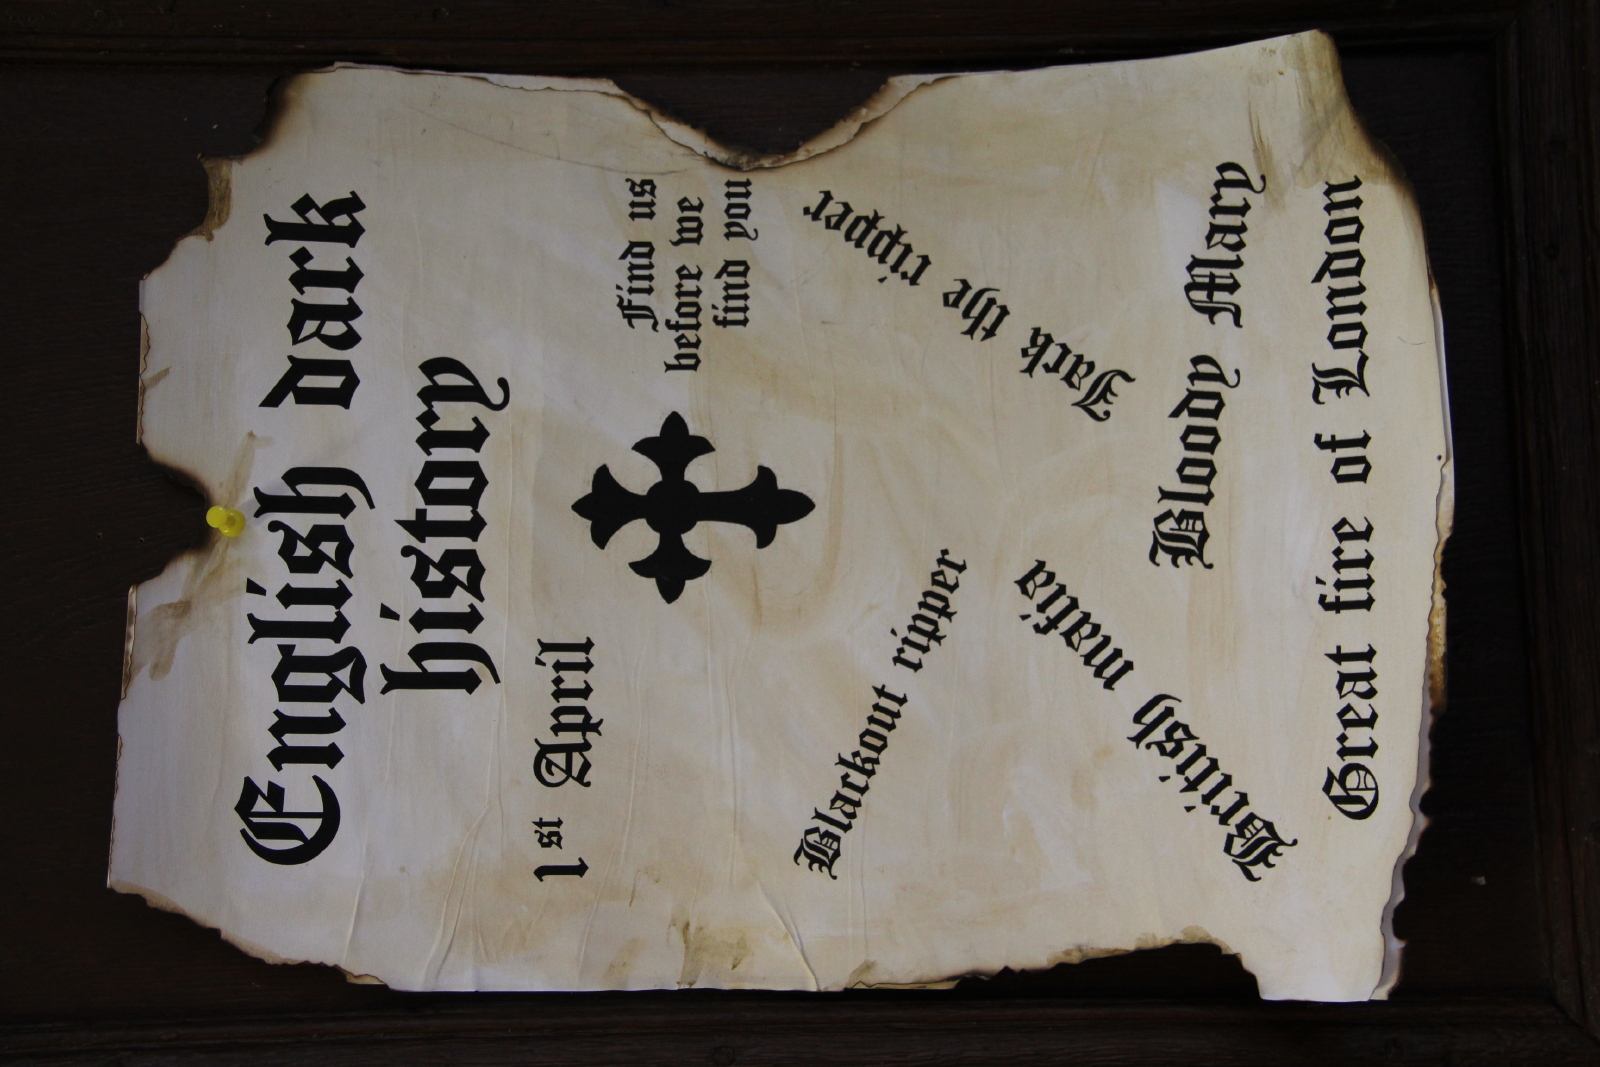 English dark
history
1st April
Find us
before we
find you
Blackout ripper
Jack the ripper
British mafia
Bloody Mary
Great fire of London